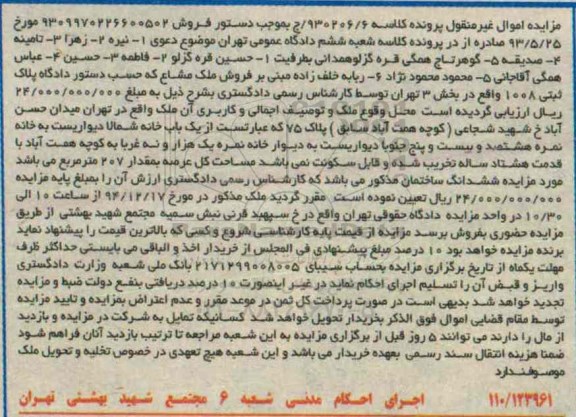 مزایده اموال غیرمنقول پرونده کلاسه ۹۳۰۲۰۶/۶/ج بموجب دستور فروش ۹۳۰۹۹۷۰۲۲۶۶۰۰۵۰۲ مورخ
۹۳/۵/۲۵ صادره از در پرونده کلاسه شعبه ششم دادگاه عمومی تهران موضوع دعوی ۱- نیره ۲- زهرا ۳- تامینه
۴- صدیقه ۵- گوهرتاج همگی قره گزلوهمدانی بطرفیت ۱- حسین قره گزلو ۲- فاطمه ۳- حسین ۴- عباس
همگی آقاجانی ۵- محمود محمود نژاد ۶- ربابه خلف زاده مبنی بر فروش ملک مشاع که حسب دستور دادگاه پلاک
ثبتی ۱۰۰۸ واقع در بخش ۳ تهران توسط کارشناس رسمی دادگستری بشرح ذیل به مبلغ ۲۴/۰۰۰/۰۰۰/۰۰۰
ریال ارزیابی گردیده است محل وقوع ملک و توصیف اجمالی و کاربری آن ملک واقع در تهران میدان حسن
آباد خ شهید شجاعی ( کوچه همت آباد سابق ) پلاک ۷۵ که عبارتست از یک باب خانه شمالا دیواریست به خانه
نمره هشتصد و بیست و پنج جنوبا دیواریست به دیوار خانه نمره یک هزار و نه غربا به کوچه همت آباد با
قدمت هشتاد ساله تخریب شده و قابل سکونت نمی باشد مساحت کل عرصه بمقدار ۲۰۷ مترمربع می باشد
مورد مزایده ششدانگ ساختمان مذکور می باشد که کارشناس رسمی دادگستری ارزش آن را بمبلغ پایه مزایده
۲۴/۰۰۰/۰۰۰/۰۰۰ ریال تعیین نموده است مقرر گردید ملک مذکور در مورخ ۹۴/۱۲/۱۷ از ساعت ۱۰ الی
۱۰/۳۰ در واحد مزایده دادگاه حقوقی تهران واقع در خ سپهبد قرنی نبش سمیه مجتمع شهید بهشتی از طریق
مزایده حضوری بفروش برسد مزایده از قیمت پایه کارشناسی شروع و کسی که بالاترین قیمت را پیشنهاد نماید
برنده مزایده خواهد بود ۱۰ درصد مبلغ پیشنهادی فی المجلس از خریدار اخذ و الباقی می بایستی حداکثر ظرف
مهلت یکماه از تاریخ برگزاری مزایده بحساب سیبای ۲۱۷۱۲۹۹۰۰۸۰۰۵ بانک ملی شعبه وزارت دادگستری
واریز و قبض آن را تسلیم اجرای احکام نماید در غیر اینصورت ۱۰ درصد دریافتی بنفع دولت ضبط و مزایده
تجدید خواهد شد بدیهی است در صورت پرداخت کل ثمن در موعد مقرر و عدم اعتراض بمزایده و تایید مزایده
توسط مقام قضایی اموال فوق الذکر بخریدار تحویل خواهد شد کسانیکه تمایل به شرکت در مزایده و بازدید
از مال را دارند می توانند ۵ روز قبل از برگزاری مزایده به این شعبه مراجعه تا ترتیب بازدید آنان فراهم شود
ضمنا هزینه انتقال سند رسمی بعهده خریدار می باشد و این شعبه هیچ تعهدی در خصوص تخلیه و تحویل ملک
موصوف ندارد
۱۱۰/۱۲۳۹۶۱ اجرای احکام مدنی شعبه ۶ مجتمع شهید بهشتی تهران